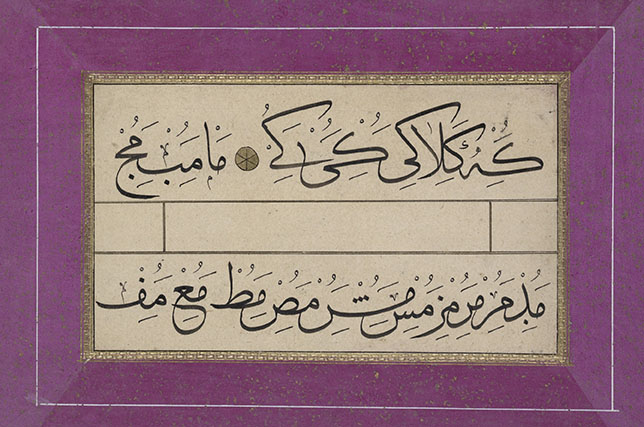 كه كلا كي كى كے ما مب مج
مد مر مر مر مس مص مط مع مف